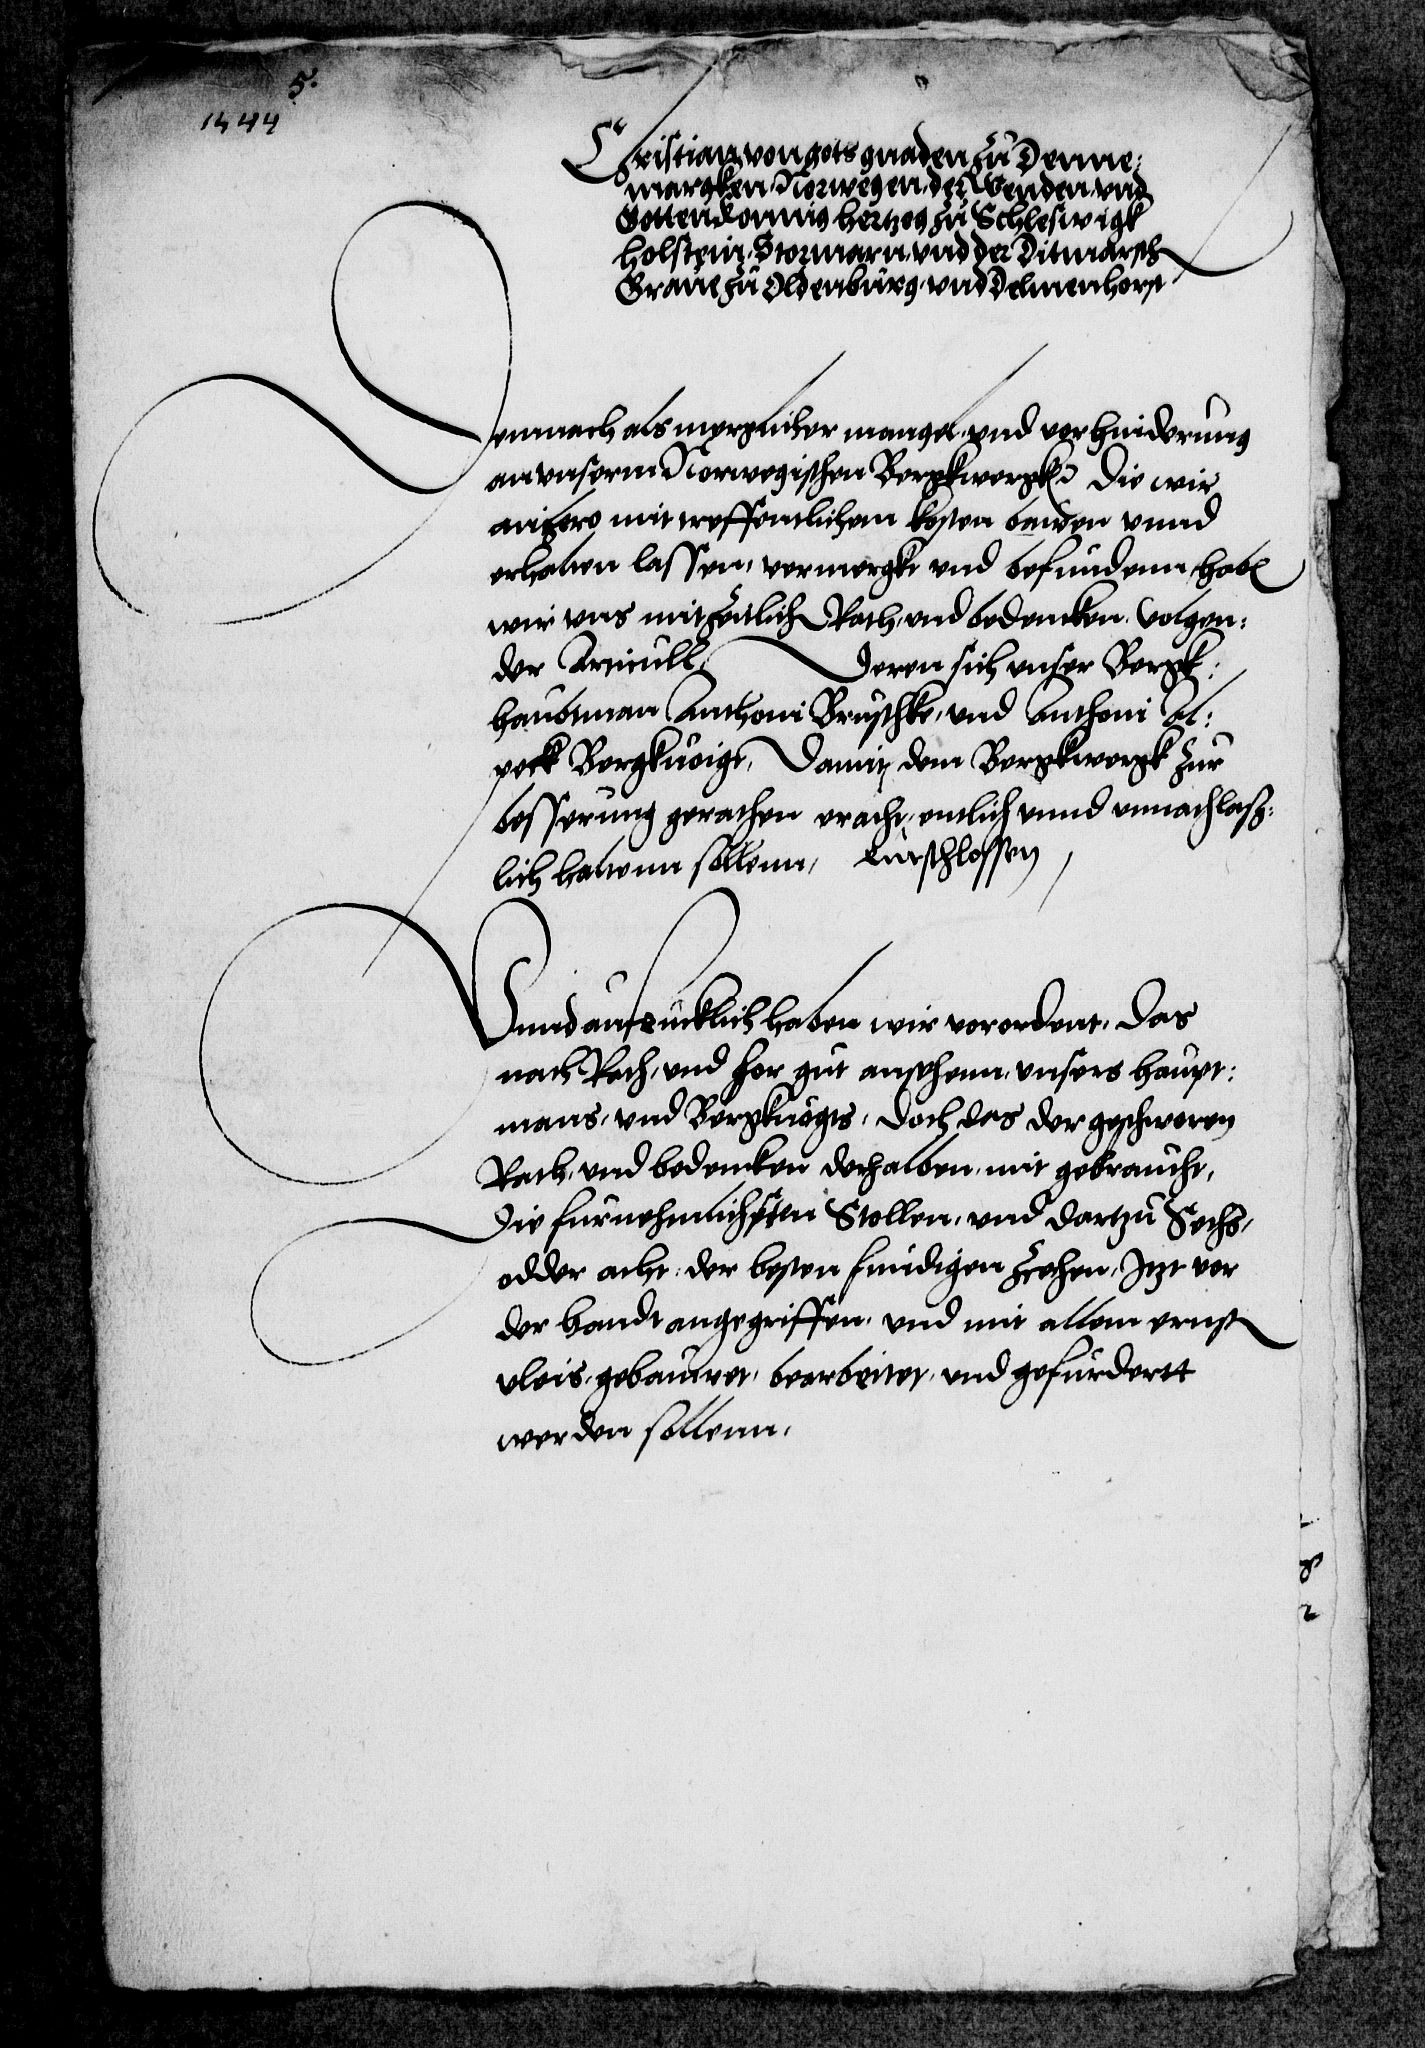 5.
1544
Christian von gots gnaden zu Denne:
margken, Norwegen, der Wenden vnd
Gotten konnig hertzog zu Schleswigk
holstein, Stormarn, vnd der Ditmarsch
Graue zu Oldenburg, vnd Delmenhorst
Demnach als mergklicher mangel, vnd verhinderung
an vnserm Norwegischen Bergkwergk Die wir
anhero mit treffentlichem kosten bawen vnnd
erhalten lassen, vermergkt vnd befundenn, hab
wir vns mit zeitlich Rath, vnd bedencken, volgen:
der Articull, Deren sich vnser Bergk:
haubtman Anthoni Bruschke, vnd Anthoni Al:
peck Bergkuoigt, Damit dem Bergkwergk zur
besserung gerathen eracht, entlich vnnd vnnachlasz:
lich haltenn sollenn, Entschlossen
Vnnd ausdrucklich haben wir verordent, Das
nach Rath, vnd for gut ansehenn, vnsers haupt:
mans, vnd Bergkuogts, Doch das der geschworen
Rath, vnd bedencken derhalben, mit gebraucht,
Die furnehmlichsten Stollen, vnd dartzu Sechs,
odder acht, der besten fundigen Zechen, Jtzt vor
der handt angegriffen, vnd mit allem ernst
vleis, gebauwet, bearbeitet, vnd gefurdertt
werden sollenn,